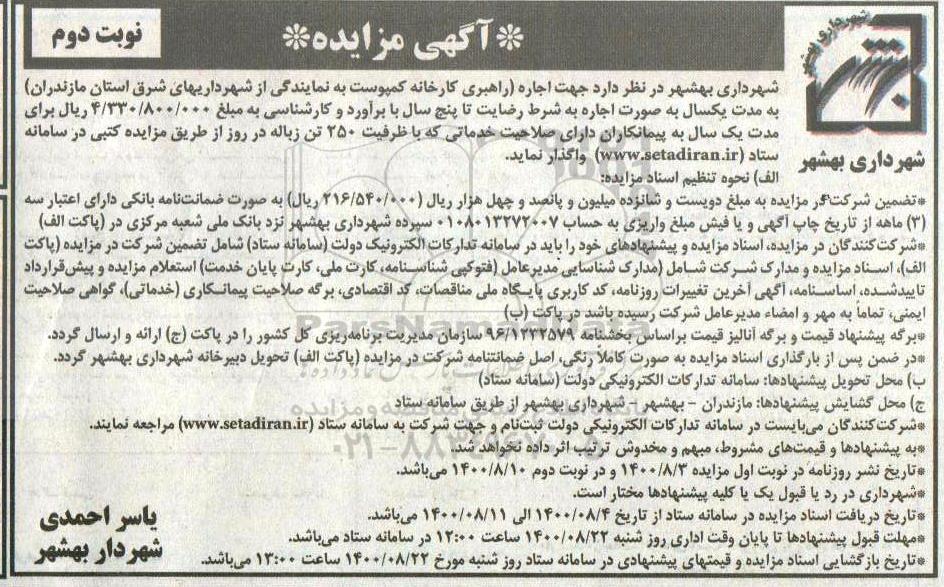 نوبت دوم
❊آگهی مزایده❊
شهرداری بهشهر
شهرداری بهشهر
شهرداری بهشهر در نظر دارد جهت اجاره (راهبری کارخانه کمپوست به نمایندگی از شهرداریهای شرق استان مازندران)
به مدت یکسال به صورت اجاره به شرط رضایت تا پنج سال با برآورد و کارشناسی به مبلغ ۴/۳۳۰/۸۰۰/۰۰۰ ریال برای
مدت یک سال به پیمانکاران دارای صلاحیت خدماتی که با ظرفیت ۲۵۰ تن زباله در روز از طریق مزایده کتبی در سامانه
ستاد (www.setadiran.ir) واگذار نماید.
الف) نحوه تنظیم اسناد مزایده:
*تضمین شرکت در مزایده به مبلغ دویست و شانزده میلیون و پانصد و چهل هزار ریال (۲۱۶/۵۴۰/۰۰۰ ریال) به صورت ضمانت‌نامه بانکی دارای اعتبار سه
(۳) ماهه از تاریخ چاپ آگهی و یا فیش مبلغ واریزی به حساب ۰۱۰۸۰۱۳۲۷۲۰۰۷ سپرده شهرداری بهشهر نزد بانک ملی شعبه مرکزی در (پاکت الف)
*شرکت‌کنندگان در مزایده، اسناد مزایده و پیشنهادهای خود را باید در سامانه تدارکات الکترونیک دولت (سامانه ستاد) شامل تضمین شرکت در مزایده (پاکت
الف)، اسناد مزایده و مدارک شرکت شامل (مدارک شناسایی مدیرعامل (فتوکپی شناسنامه، کارت ملی، کارت پایان خدمت) استعلام مزایده و پیش‌قرارداد
تاییدشده، اساسنامه، آگهی آخرین تغییرات روزنامه، کد کاربری پایگاه ملی مناقصات، کد اقتصادی، برگه صلاحیت پیمانکاری (خدماتی)، گواهی صلاحیت
ایمنی، تماماً به مهر و امضاء مدیرعامل شرکت رسیده باشد در پاکت (ب)
*برگه پیشنهاد قیمت و برگه آنالیز قیمت براساس بخشنامه ۹۶/۱۳۳۲۵۷۹ سازمان مدیریت برنامه‌ریزی کل کشور را در پاکت (ج) ارائه و ارسال گردد.
*در ضمن پس از بارگذاری اسناد مزایده به صورت کاملاً رنگی، اصل ضمانتنامه شرکت در مزایده (پاکت الف) تحویل دبیرخانه شهرداری بهشهر گردد.
ب) محل تحویل پیشنهادها: سامانه تدارکات الکترونیکی دولت (سامانه ستاد)
ج) محل گشایش پیشنهادها: مازندران – بهشهر – شهرداری بهشهر از طریق سامانه ستاد
*شرکت‌کنندگان می‌بایست در سامانه تدارکات الکترونیکی دولت ثبت‌نام و جهت شرکت به سامانه ستاد (www.setadiran.ir) مراجعه نمایند.
*به پیشنهادها و قیمت‌های مشروط، مبهم و مخدوش ترتیب اثر داده نخواهد شد.
*تاریخ نشر روزنامه در نوبت اول مزایده ۱۴۰۰/۸/۳ و در نوبت دوم ۱۴۰۰/۸/۱۰ می‌باشد.
*شهرداری در رد یا قبول یک یا کلیه پیشنهادها مختار است.
*تاریخ دریافت اسناد مزایده در سامانه ستاد از تاریخ ۱۴۰۰/۰۸/۴ الی ۱۴۰۰/۰۸/۱۱ می‌باشد.
*مهلت قبول پیشنهادها تا پایان وقت اداری روز شنبه ۱۴۰۰/۰۸/۲۲ ساعت ۱۲:۰۰ در سامانه ستاد می‌باشد.
*تاریخ بازگشایی اسناد مزایده و قیمتهای پیشنهادی در سامانه ستاد روز شنبه مورخ ۱۴۰۰/۰۸/۲۲ ساعت ۱۳:۰۰ می‌باشد.
یاسر احمدی
شهردار بهشهر
ParsNamadData